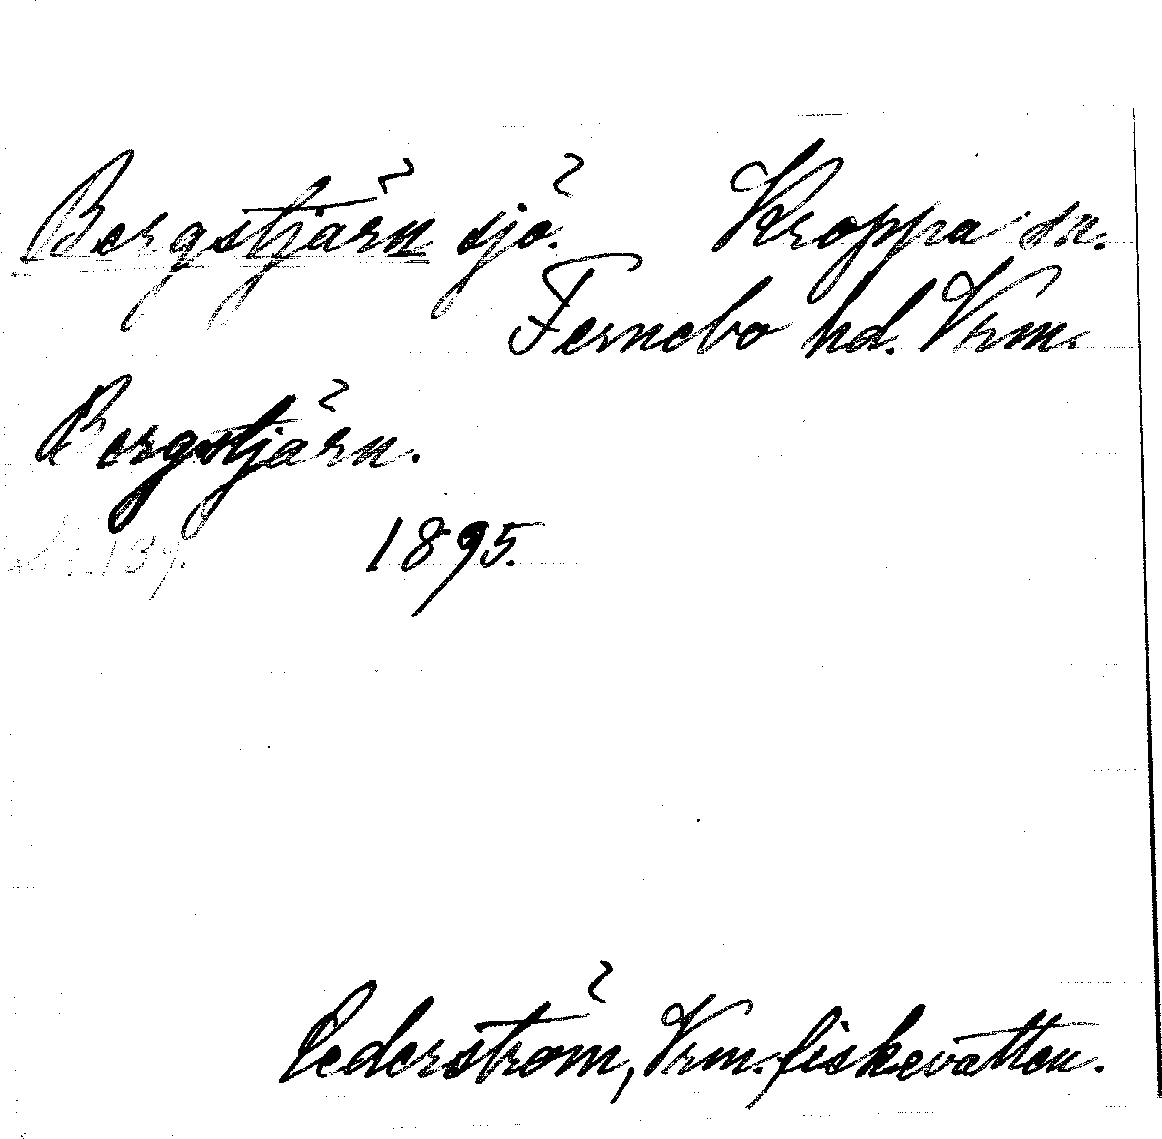 Bergstjärn sjö. Kroppa sn.
Fernebo hd. Vrm.
Bergstjärn.
1895.
Cederström, Vrm. fiskevatten.